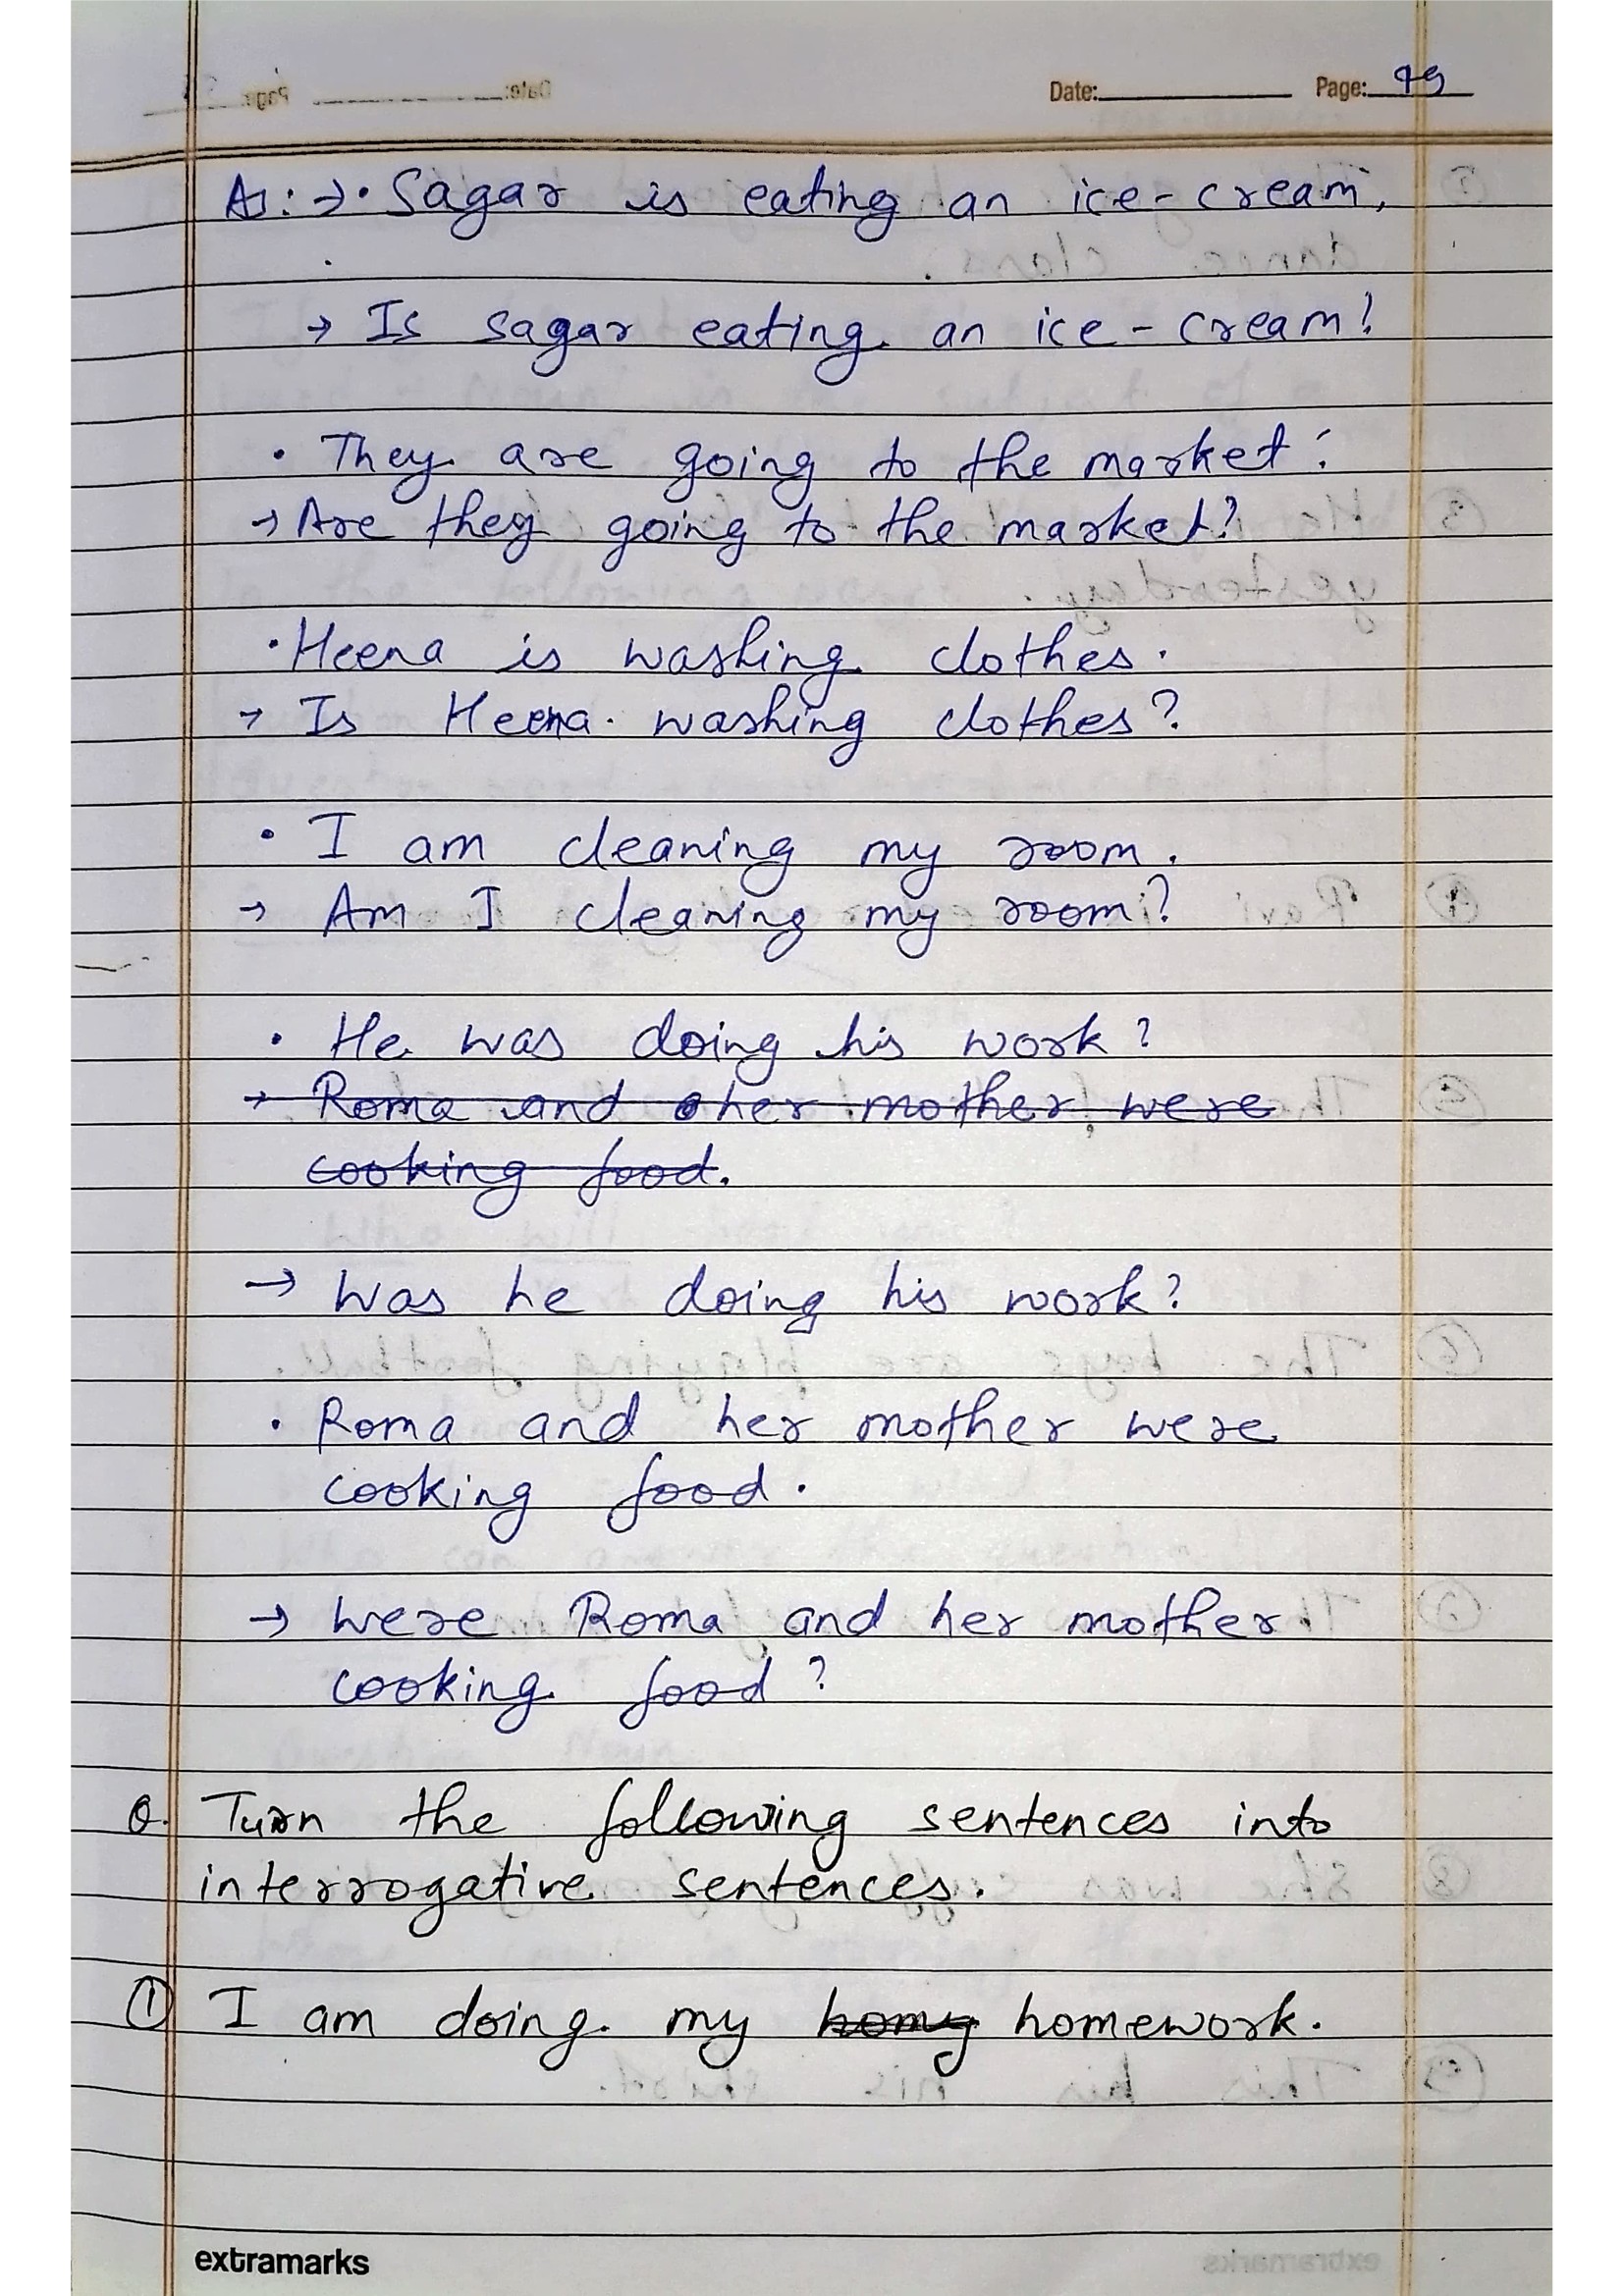 Date: Page: 49
As: → • Sagar is eating an ice-cream.
→ Is sagar eating an ice-cream!
• They are going to the market.
→ Are they going to the market?
• Heena is washing clothes.
→ Is Heena washing clothes?
• I am cleaning my room.
→ Am I cleaning my room?
• He was doing his work?
→ Roma and her mother were
cooking food.
→ Was he doing his work?
• Roma and her mother were
cooking food.
→ Were Roma and her mother
cooking food?
Q. Turn the following sentences into
interrogative sentences.
① I am doing my homy homework.
extramarks